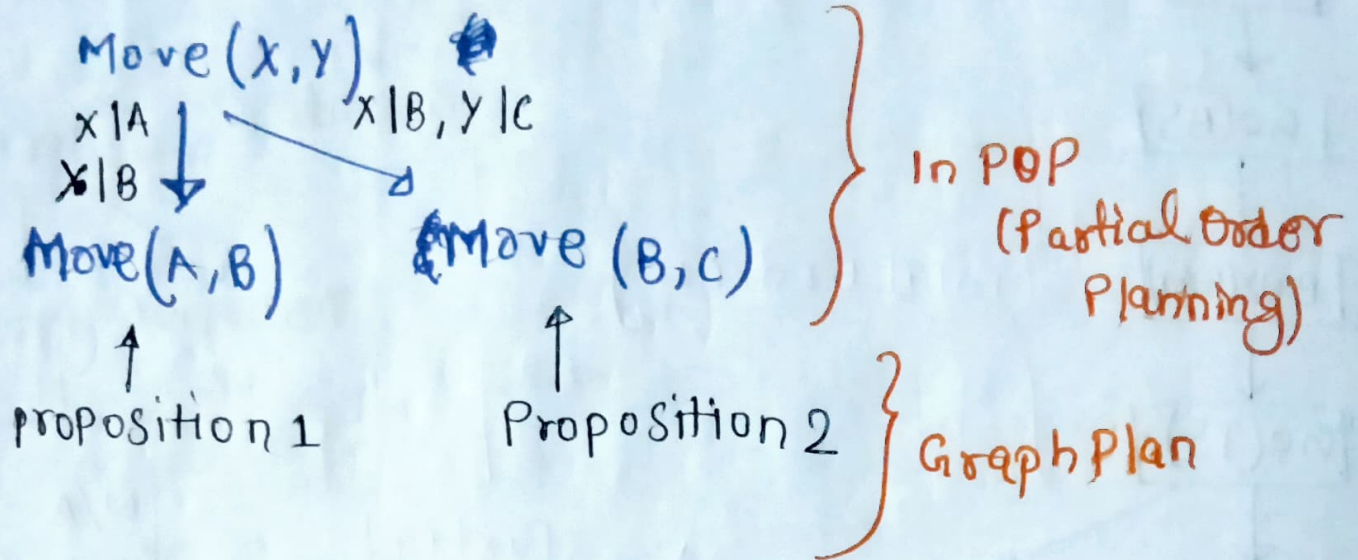 Move (X, Y)
X|A
X|B, Y|C
X|B
Move (A, B)
Move (B, C)
In POP
(Partial Order
Planning)
proposition 1
Proposition 2
GraphPlan